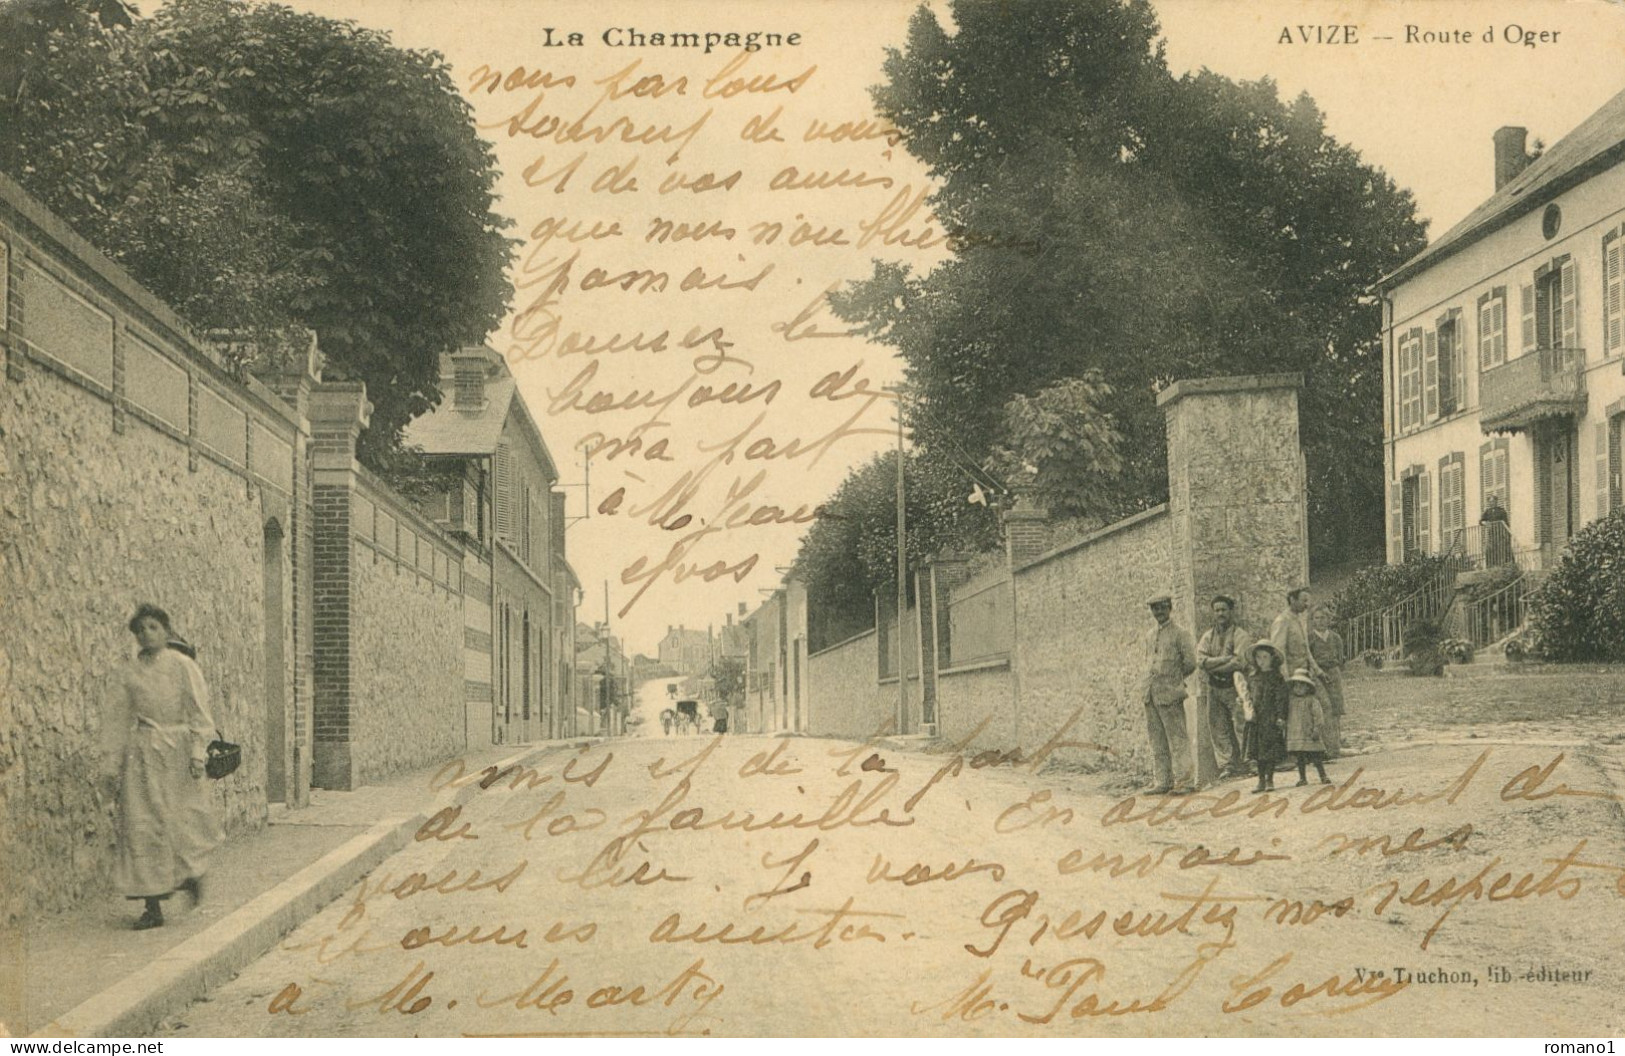 La Champagne
AVIZE — Route d'Oger
nous parlons
souvent de vous
et de vos amis
que nous n'oublierons
jamais.
Donnez le
bonjour de
ma part
à M. Jean
et vos
amis et de la part
de la famille. En attendant de
vous lire. Je vous envoie mes
bonnes amitiés. Presentez nos respects
à M. Marty
M. Paul
Vve Truchon, lib.-éditeur
delcampe.net
romano1